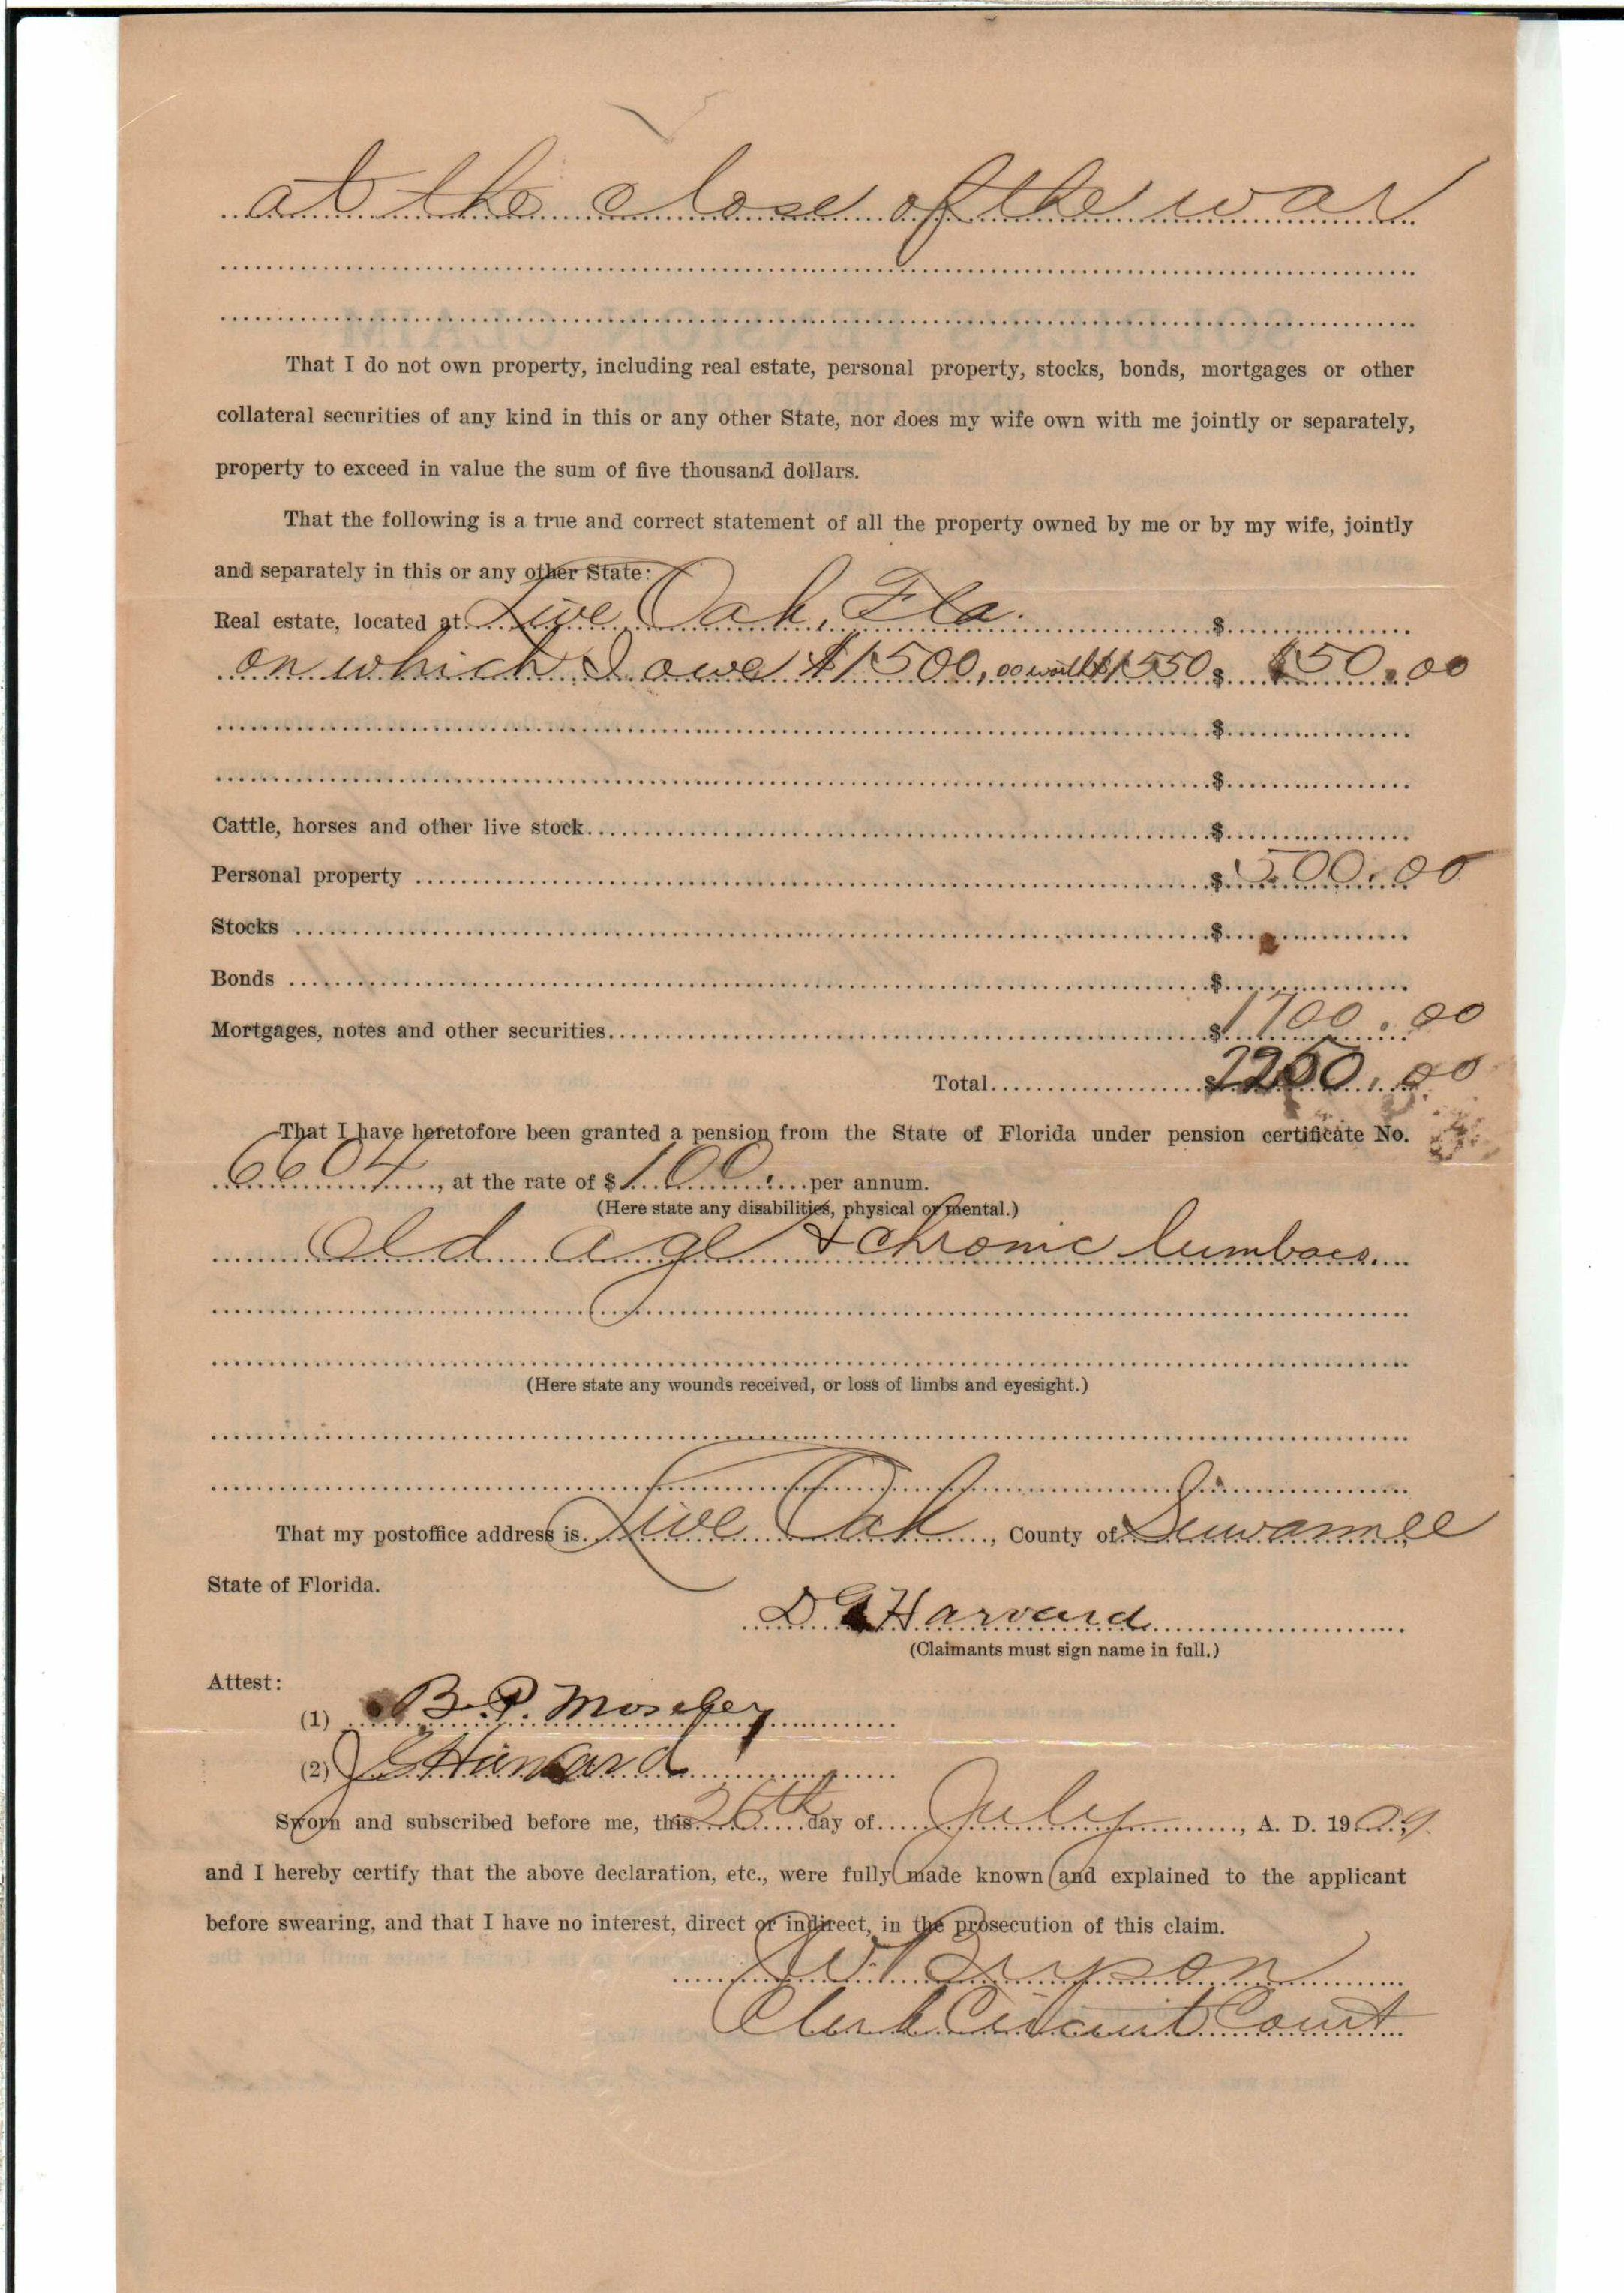 at the close of the war
That I do not own property, including real estate, personal property, stocks, bonds, mortgages or other
collateral securities of any kind in this or any other State, nor does my wife own with me jointly or separately,
property to exceed in value the sum of five thousand dollars.
That the following is a true and correct statement of all the property owned by me or by my wife, jointly
and separately in this or any other State:
Real estate, located at Live Oak, Fla. $
on which I owe $1500,00 worth $1550 $ 50.00
$
$
Cattle, horses and other live stock $
Personal property $ 500.00
Stocks $
Bonds $
Mortgages, notes and other securities $ 1700.00
Total $ 2250.00
That I have heretofore been granted a pension from the State of Florida under pension certificate No.
6604, at the rate of $100. per annum.
(Here state any disabilities, physical or mental.)
Old age & chronic
(Here state any wounds received, or loss of limbs and eyesight.)
That my postoffice address is Live Oak, County of Suwannee
State of Florida.
D G Harvard
(Claimants must sign name in full.)
Attest:
(1) B. P. Moseley
(2)
Sworn and subscribed before me, this 26th day of July, A. D. 1909.
and I hereby certify that the above declaration, etc., were fully made known and explained to the applicant
before swearing, and that I have no interest, direct or indirect, in the prosecution of this claim.
Bryson
Clerk Circuit Court